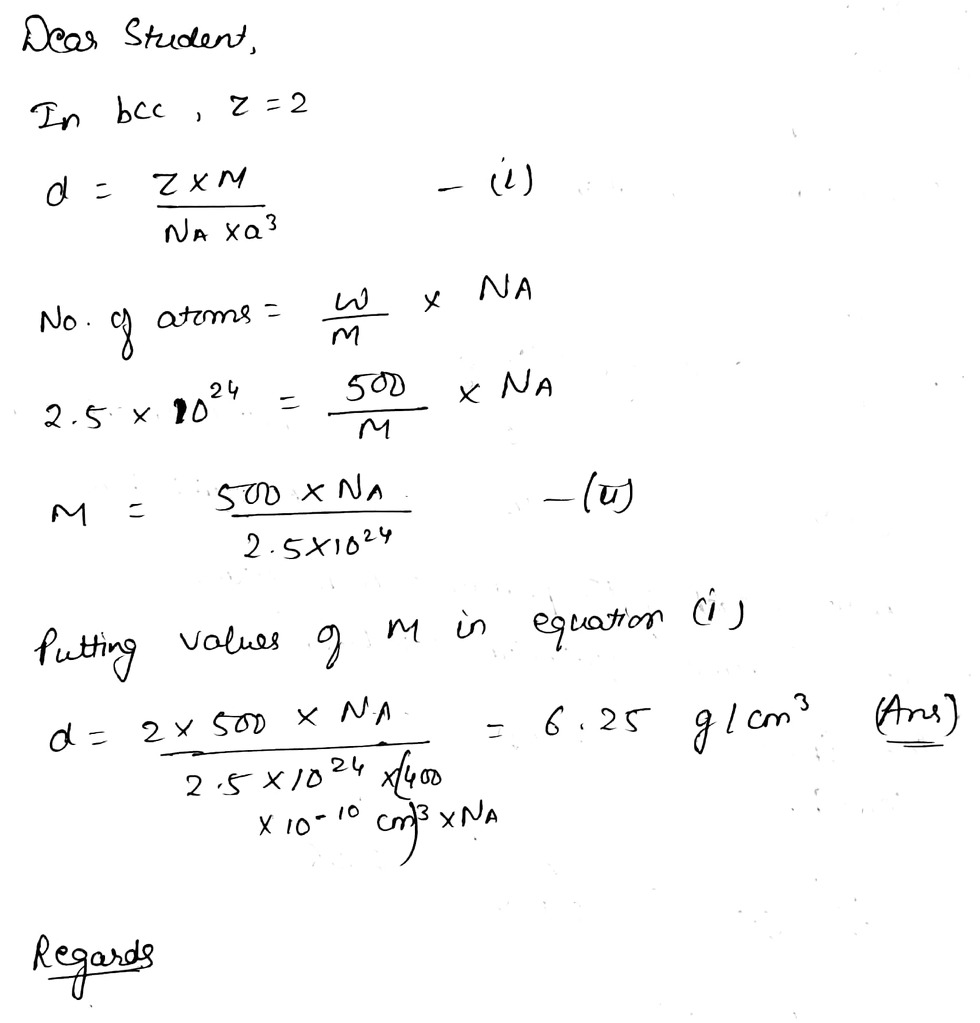 Dear Student,
In bcc, Z = 2
d = Z X M / NA X a³ - (i)
No. of atoms = W / M x NA
2.5 x 10²⁴ = 500 / M x NA
M = 500 x NA / 2.5X10²⁴ - (ii)
Putting values of M in equation (i)
d = 2 x 500 x NA / 2.5 X 10²⁴ x (400 X 10⁻¹⁰ cm)³ x NA = 6.25 g/cm³ (Ans)
Regards